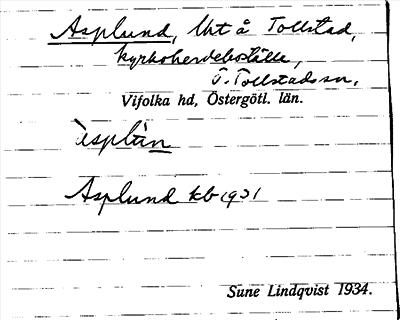 Asplund, Urt å Tollstad,
kyrkoherdeboställe,
V. Tollstads sn,
Vifolka hd, Östergötl. län.
àsplùn
Asplund kb 1931
Sune Lindqvist 1934.